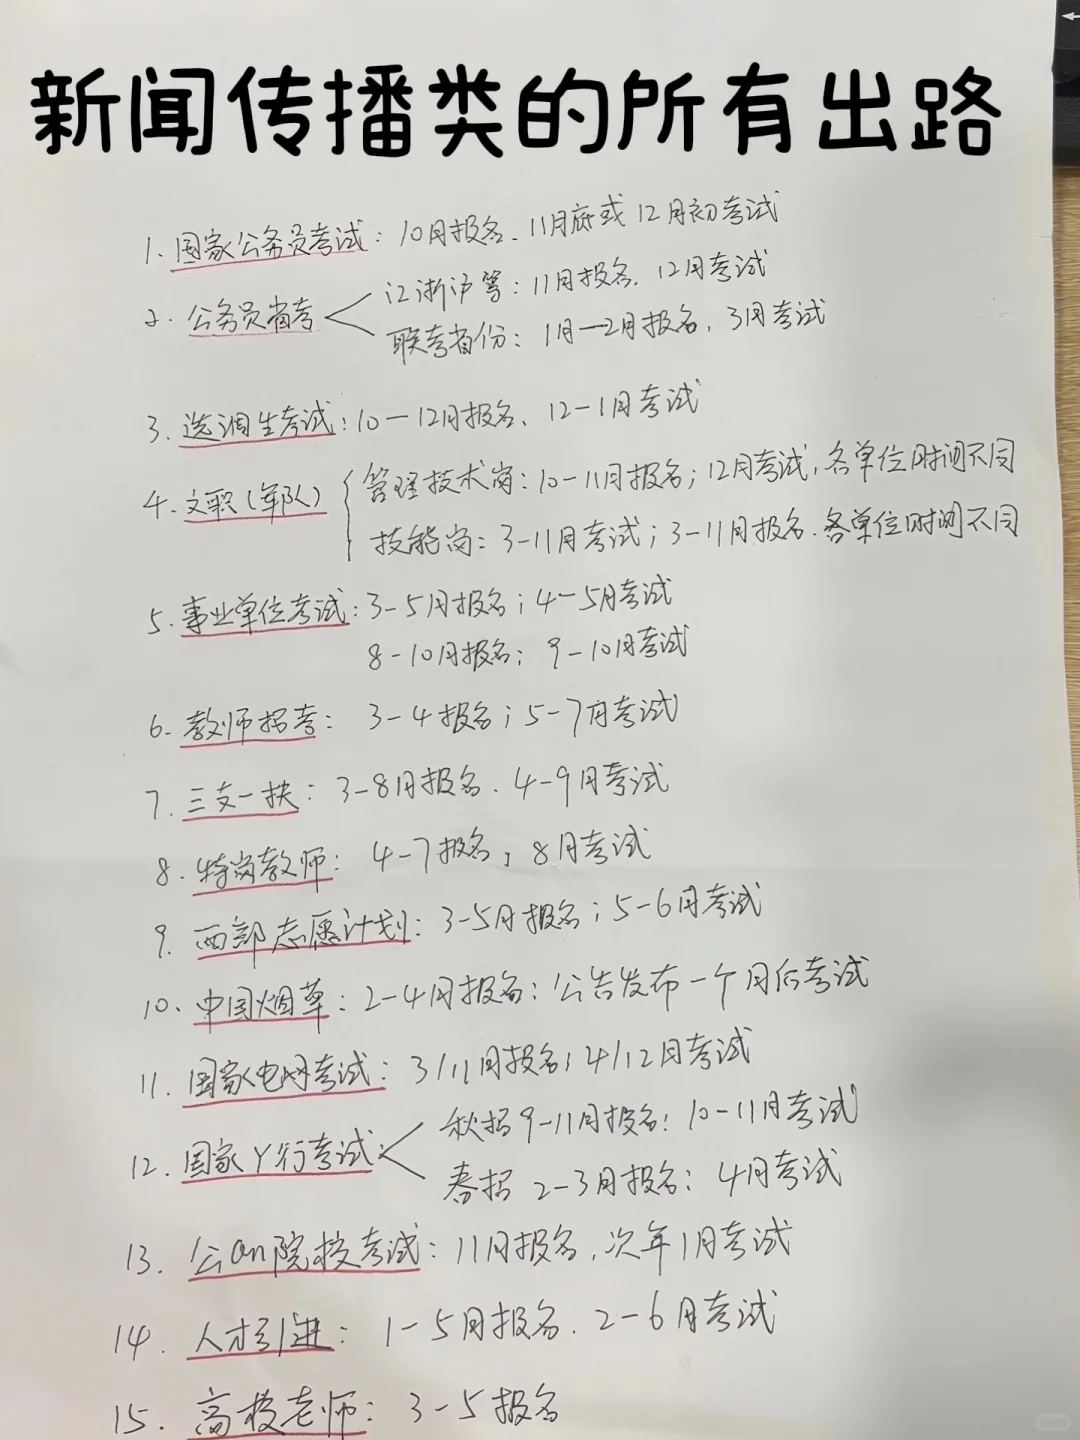 新闻传播类的所有出路
1. 国家公务员考试：10月报名、11月底或12月初考试
2. 公务员省考
江浙沪等：11月报名、12月考试
联考省份：1月—2月报名、3月考试
3. 选调生考试：10—12月报名、12-1月考试
4. 文职（军队）
管理技术岗：10-11月报名；12月考试，各单位时间不同
技能岗：3-11月考试；3-11月报名、各单位时间不同
5. 事业单位考试：3-5月报名；4-5月考试
8-10月报名；9-10月考试
6. 教师招考：3-4报名；5-7月考试
7. 三支一扶：3-8月报名、4-9月考试
8. 特岗教师：4-7报名；8月考试
9. 西部志愿计划：3-5月报名；5-6月考试
10、中国烟草：2-4月报名；公告发布一个月后考试
11. 国家电网考试：3/11月报名；4/12月考试
12. 国家Y行考试
秋招9-11月报名；10-11月考试
春招 2-3月报名；4月考试
13. 公an院校考试：11月报名，次年1月考试
14. 人才引进：1-5月报名、2-6月考试
15. 高校老师：3-5报名